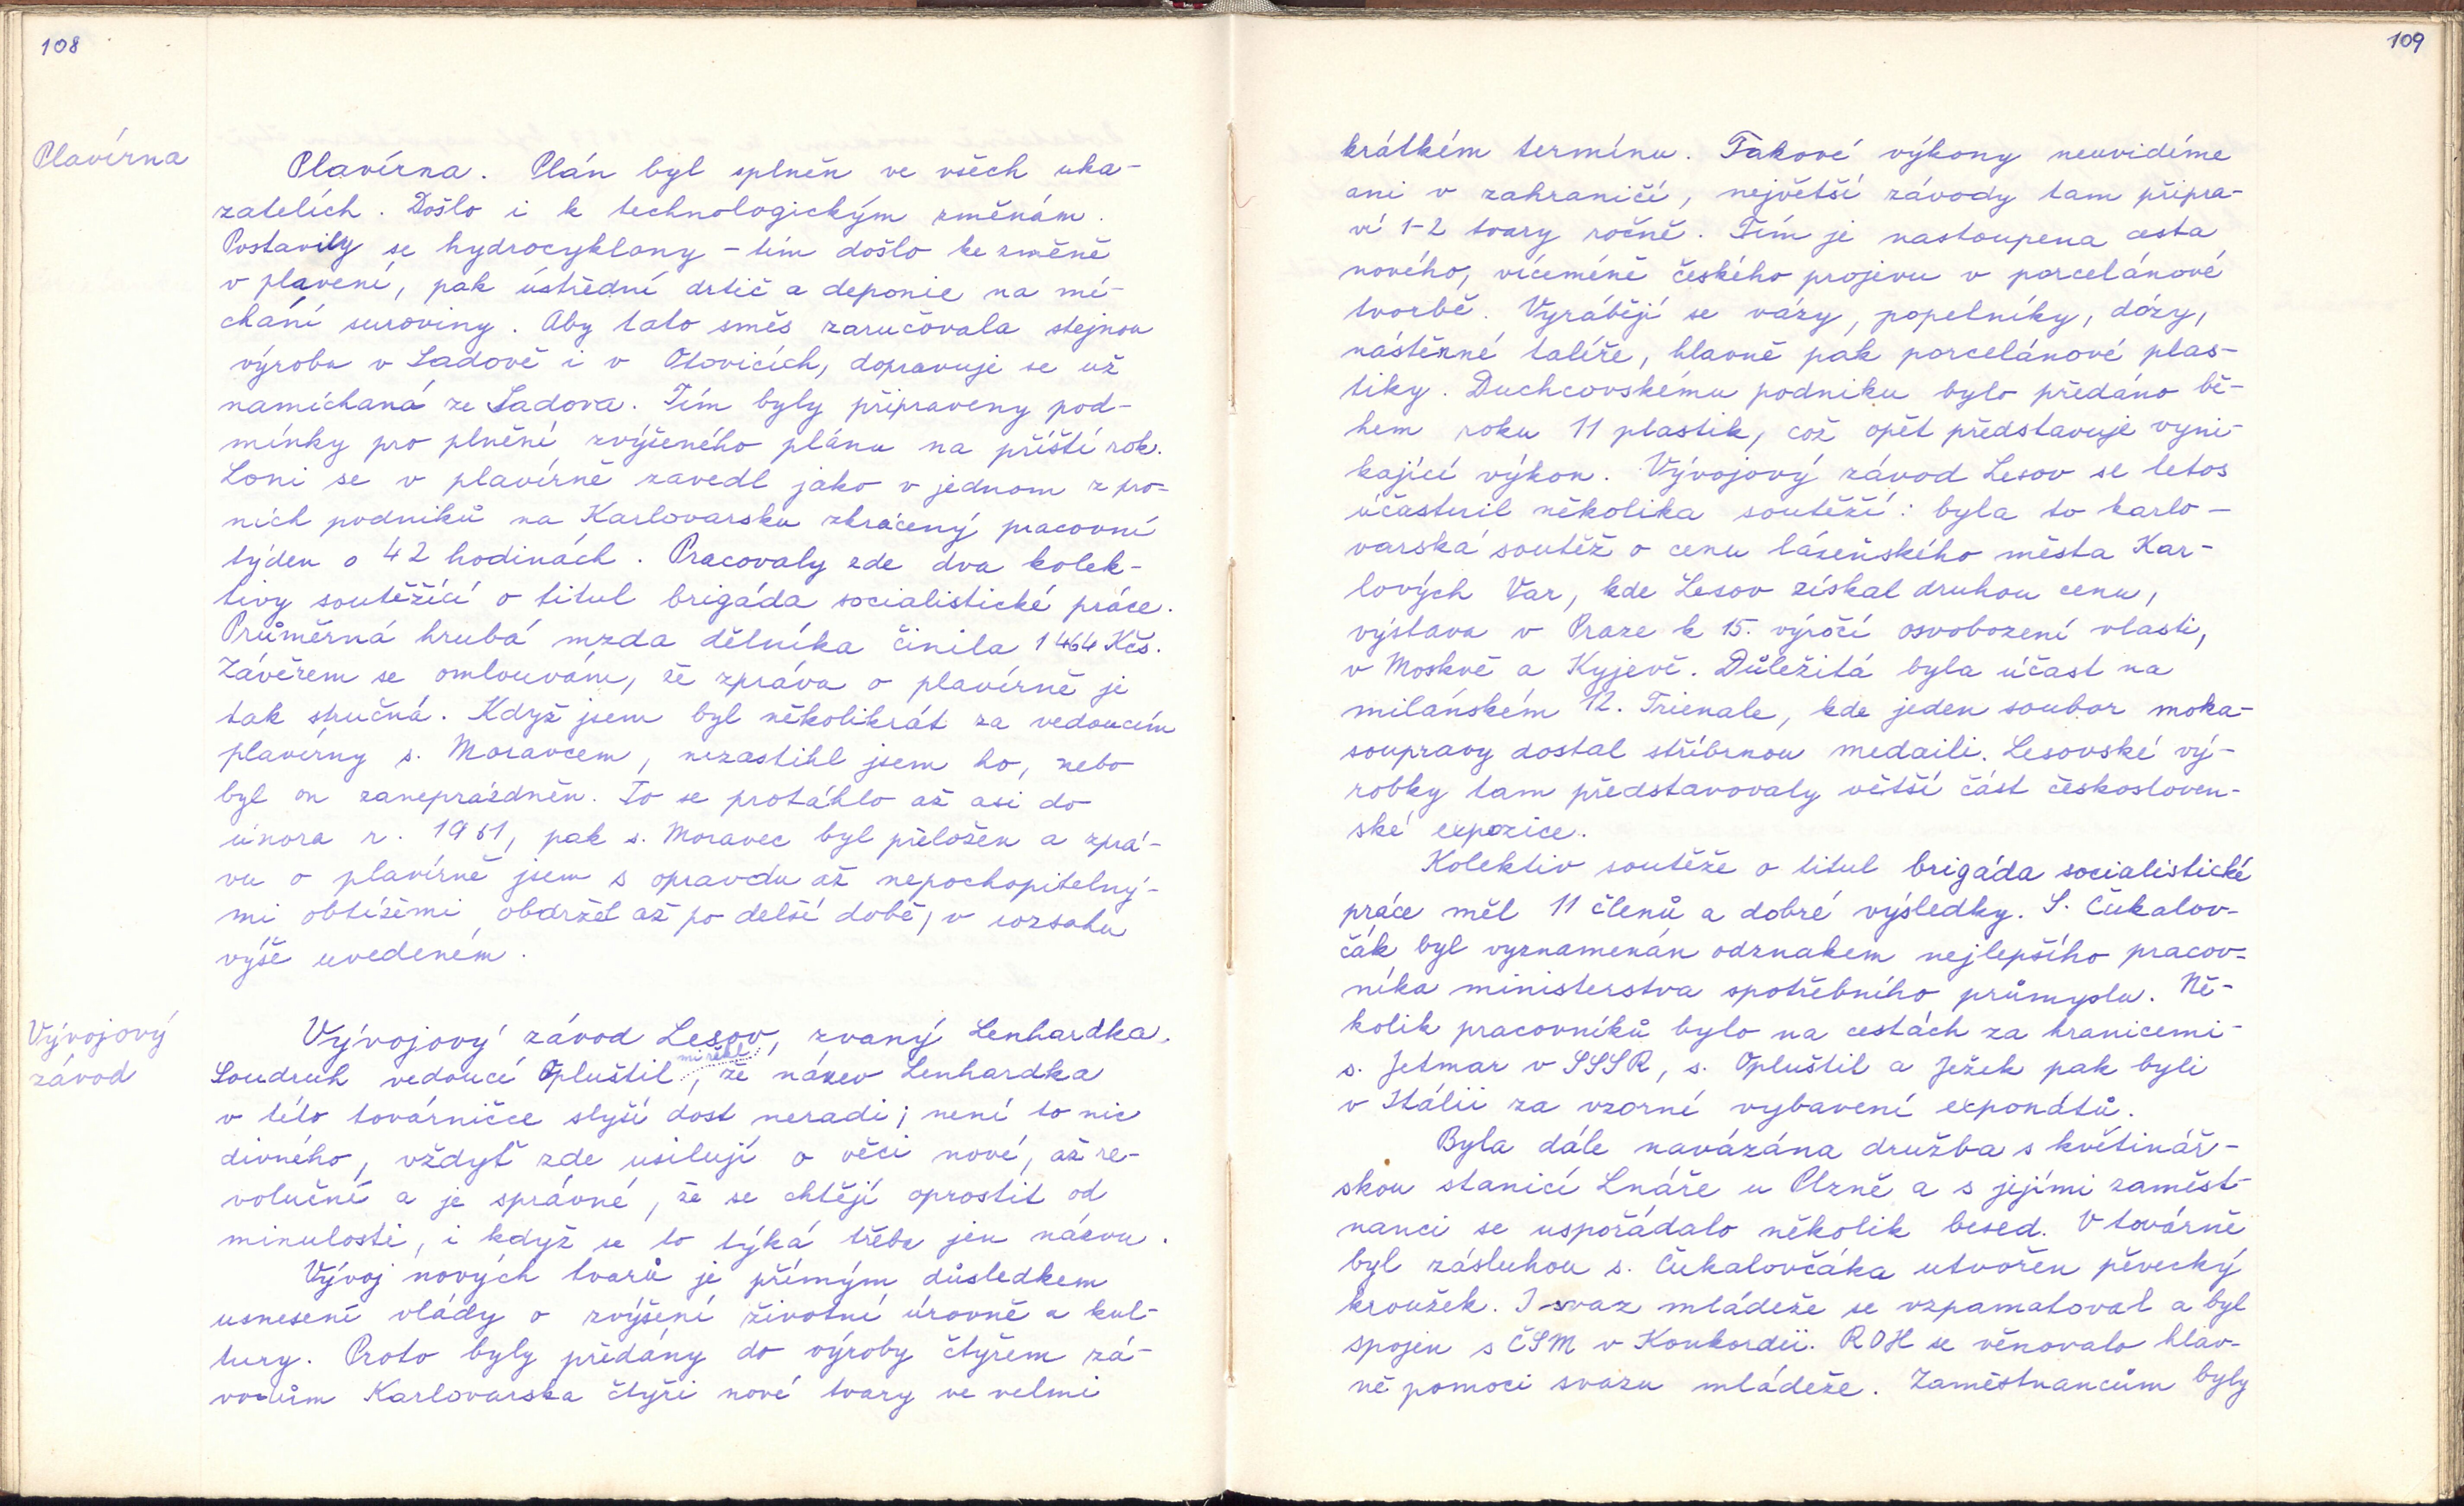 108
Plavírna
Plavírna. Plán byl splněn ve všech uka-
zatelích. Došlo i k technologickým změnám.
Postavily se hydrocyklony - tím došlo ke změně
v plavení, pak ústřední drtič a deponie na mí-
chání suroviny. Aby tato směs zaručovala stejnou
výrobu v Sadově i v Otovicích, dopravuje se už
namíchaná ze Sadova. Tím byly připraveny pod-
mínky pro plnění zvýšeného plánu na příští rok.
Loni se v plavírně zavedl jako v jednom z prv-
ních podniků na Karlovarsku zkrácený pracovní
týden o 42 hodinách. Pracovaly zde dva kolek-
tivy soutěžící o titul brigáda socialistické práce.
Průměrná hrubá mzda dělníka činila 1464 Kčs.
Závěrem se omlouvám, že zpráva o plavírně je
tak stručná. Když jsem byl několikrát za vedoucím
plavírny s. Moravcem, nezastihl jsem ho, nebo
byl on zaneprázdněn. To se protáhlo až asi do
února r. 1961, pak s. Moravec byl přeložen a zprá-
vu o plavírně jsem s opravdu až nepochopitelný-
mi obtížemi obdržel až po delší době, v rozsahu
výše uvedeném.
Vývojový
závod
Vývojový závod Lesov, zvaný Lenhardka.
Soudruh vedoucí Opluštil mi řekl, že název Lenhardka
v této továrničce slyší dost neradi; není to nic
divného, vždyť zde usilují o věci nové, až re-
voluční a je správné, že se chtějí oprostit od
minulosti, i když se to týká třeba jen názvu.
Vývoj nových tvarů je přímým důsledkem
usnesení vlády o zvýšení životní úrovně a kul-
tury. Proto byly předány do výroby čtyřem zá-
vodům Karlovarska čtyři nové tvary ve velmi
109
krátkém termínu. Takové výkony neuvidíme
ani v zahraničí, největší závody tam připra-
ví 1-2 tvary ročně. Tím je nastoupena cesta
nového, víceméně českého projevu v porcelánové
tvorbě. Vyrábějí se vázy, popelníky, dózy,
nástěnné talíře, hlavně pak porcelánové plas-
tiky. Duchcovskému podniku bylo předáno bě-
hem roku 11 plastik, což opět představuje vyni-
kající výkon. Vývojový závod Lesov se letos
účastnil několika soutěží: byla to karlo-
varská soutěž o cenu lázeňského města Kar-
lových Var, kde Lesov získal druhou cenu,
výstava v Praze k 15. výročí osvobození vlasti,
v Moskvě a Kyjevě. Důležitá byla účast na
milánském 12. Trienale, kde jeden soubor moka-
soupravy dostal stříbrnou medaili. Lesovské vý-
robky tam představovaly větší část českosloven-
ské expozice.
Kolektiv soutěže o titul brigáda socialistické
práce měl 11 členů a dobré výsledky. S. Čukalov-
čák byl vyznamenán odznakem nejlepšího pracov-
níka ministerstva spotřebního průmyslu. Ně-
kolik pracovníků bylo na cestách za hranicemi -
s. Jetmar v SSSR, s. Opluštil a Ježek pak byli
v Itálii za vzorné vybavení exponátů.
Byla dále navázána družba s květinář-
skou stanicí Lnáře u Plzně a s jejími zaměst-
nanci se uspořádalo několik besed. V továrně
byl zásluhou s. Čukalovčáka utvořen pěvecký
kroužek. I svaz mládeže se vzpamatoval a byl
spojen s ČSM v Konkordii. ROH se věnovalo hlav-
ně pomoci svazu mládeže. Zaměstnancům byly